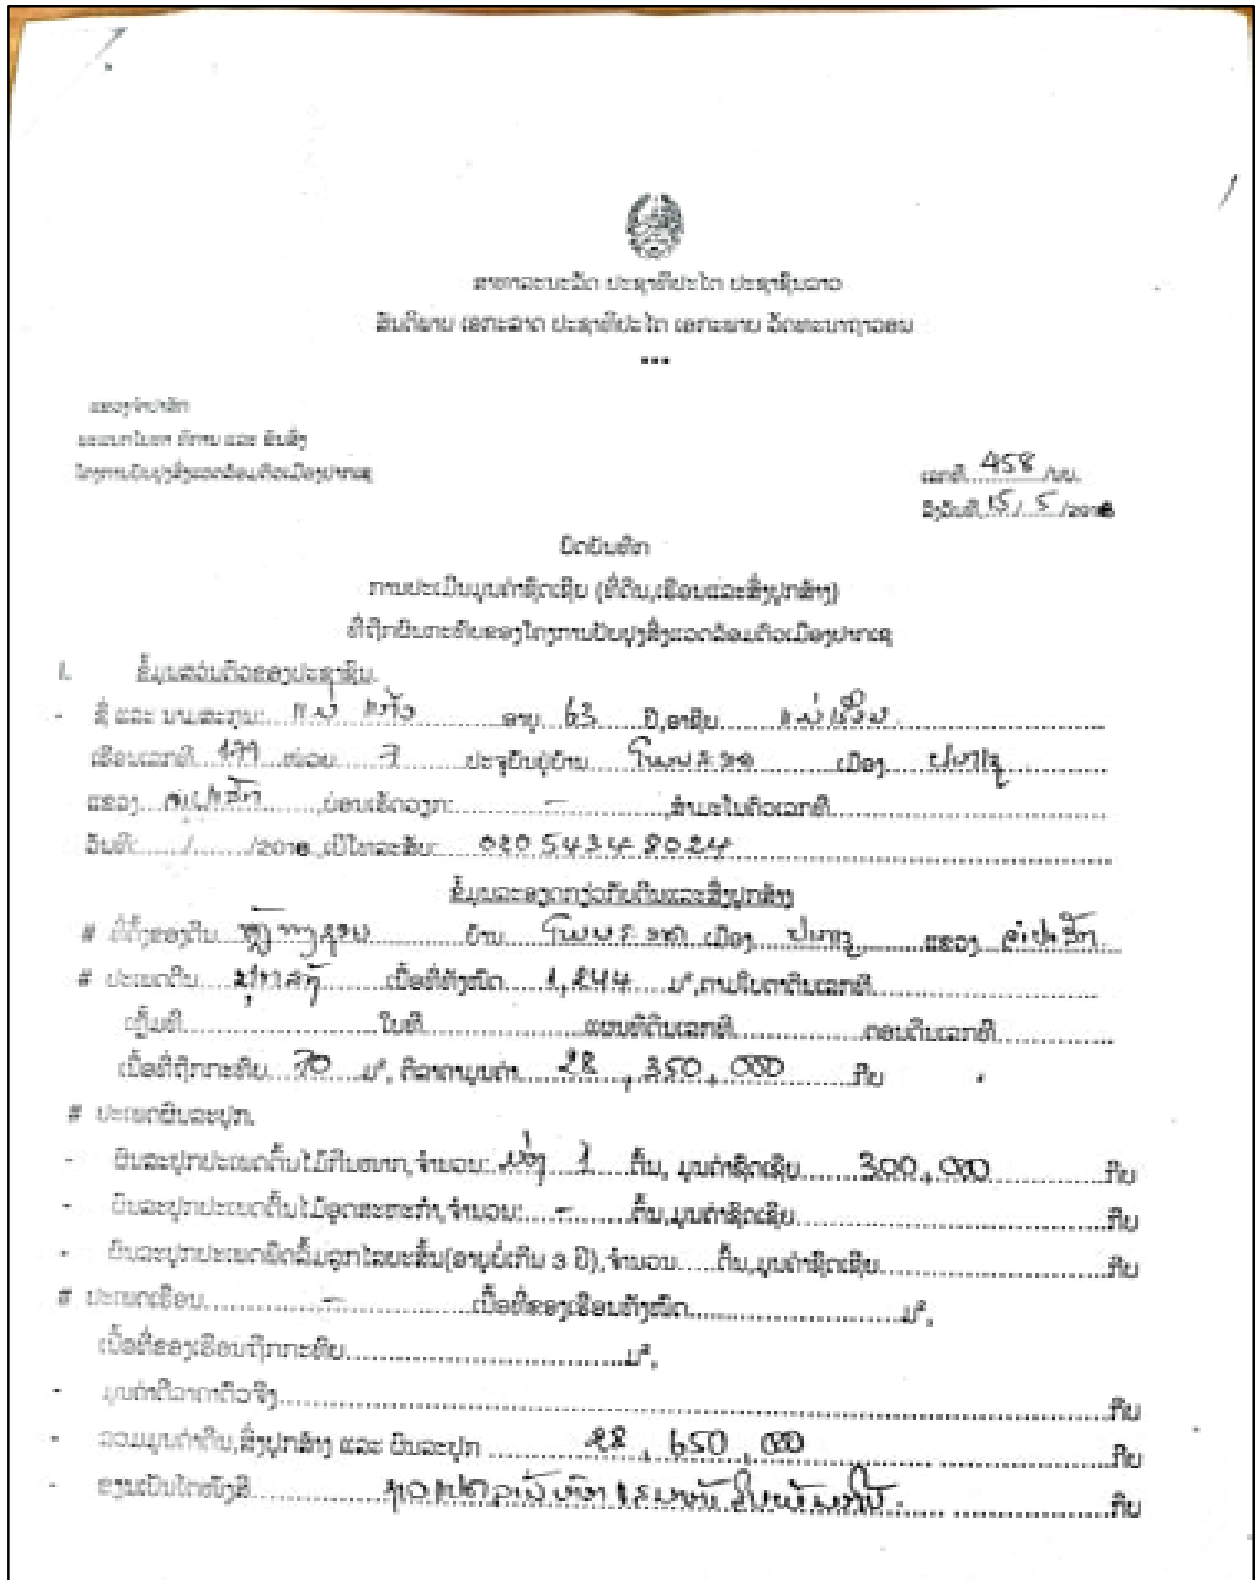 ສາທາລະນະລັດ ປະຊາທິປະໄຕ ປະຊາຊົນລາວ
ສັນຕິພາບ ເອກະລາດ ປະຊາທິປະໄຕ ເອກະພາບ ວັດທະນາຖາວອນ
***
ແຂວງຈຳປາສັກ
ຂະແໜງໂຍທາ ທິການ ແລະ ຂົນສົ່ງ
ໂຄງການປັບປຸງສິ່ງແວດລ້ອມຕົວເມືອງປາກເຊ
ເລກທີ 458 /ປປ.
ລົງວັນທີ 15/ 5 /2018
ບົດບັນທຶກ
ການປະເມີນມູນຄ່າຊົດເຊີຍ (ທີ່ດິນ,ເຮືອນແລະສິ່ງປູກສ້າງ)
ທີ່ຖືກຜົນກະທົບຂອງໂຄງການປັບປຸງສິ່ງແວດລ້ອມຕົວເມືອງປາກເຊ
I. ຂໍ້ມູນສ່ວນຕົວຂອງປະຊາຊົນ.
- ຊື່ ແລະ ນາມສະກຸນ: ແມ່ ອາຍຸ 63 ປີ,ອາຊີບ ແມ່ເຮືອນ
ເຮືອນເລກທີ ໜ່ວຍ 7 ປະຈຸບັນຢູ່ບ້ານ ໂພນສະອາດ ເມືອງ ປາກເຊ
ແຂວງ ຈຳປາສັກ ,ບ່ອນເຮັດວຽກ: - ,ສຳມະໂນຄົວເລກທີ
ວັນທີ: / /2018 ,ເບີໂທລະສັບ: 020 5434 8024
ຂໍ້ມູນລະອຽດກ່ຽວກັບດິນແລະສິ່ງປູກສ້າງ
# ທີ່ຕັ້ງຂອງດິນ ບ້ານ ໂພນສະອາດ ເມືອງ ປາກເຊ ແຂວງ ຈຳປາສັກ
# ປະເພດດິນ ປຸກສ້າງ ເນື້ອທີ່ທັງໝົດ 1,244 ມ²,ຕາມໃບຕາດິນເລກທີ
ເຫຼັ້ມທີ ໃບທີ ແຜນທີ່ດິນເລກທີ ຕອນດິນເລກທີ
ເນື້ອທີ່ຖືກກະທົບ 70 ມ², ຕີລາຄາມູນຄ່າ 28 , 350 , 000 ກີບ
# ປະເພດຜົນລະປູກ.
- ຜົນລະປູກປະເພດຕົ້ນໄມ້ກິນໝາກ,ຈຳນວນ: ມ່ວງ 1 ຕົ້ນ, ມູນຄ່າຊົດເຊີຍ 300,000 ກີບ
- ຜົນລະປູກປະເພດຕົ້ນໄມ້ອຸດສະຫະກຳ,ຈຳນວນ: - ຕົ້ນ,ມູນຄ່າຊົດເຊີຍ ກີບ
- ຜົນລະປູກປະເພດພືດລົ້ມລູກໄລຍະສັ້ນ(ອາຍຸບໍ່ເກີນ 3 ປີ),ຈຳນວນ ຕົ້ນ,ມູນຄ່າຊົດເຊີຍ ກີບ
# ປະເພດເຮືອນ - ເນື້ອທີ່ຂອງເຮືອນທັງໝົດ ມ²,
ເນື້ອທີ່ຂອງເຮືອນຖືກກະທົບ ມ²,
- ມູນຄ່າຕີລາຄາຕົວຈິງ ກີບ
- ລວມມູນຄ່າດິນ,ສິ່ງປູກສ້າງ ແລະ ຜົນລະປູກ 28 , 650 , 000 ກີບ
- ຂຽນເປັນໂຕໜັງສື ຊາວແປດລ້ານ ຫົກແສນຫ້າສິບພັນກີບ ກີບ